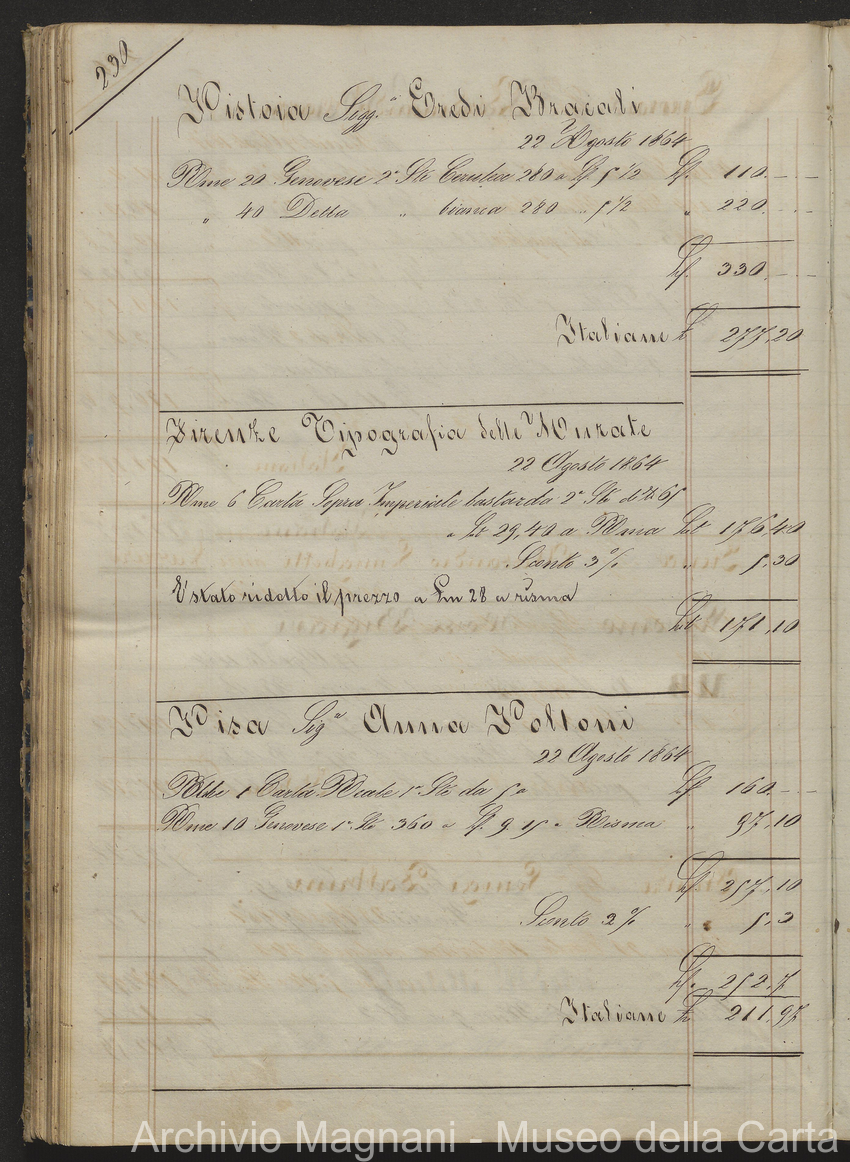 230
Pistoia Sigg.ri Eredi Bracali
22 Agosto 1864
Rme 20 Genovese 2a Sta 280 a Lf 5 1/2 Lf. 110.--
" 40 Detta " bianca 280 " 5 1/2 " 220.--
Lf. 330.--
Italiane L 277,20
Firenze Tipografia delle Murate
22 Agosto 1864
Rme 6 Carta Sopra Imperiale bastarda 2a Sta di lb 65
a Lit 29,40 a Risma Lit 176,40
Sconto 3% " 5.30
È stato ridotto il prezzo a Ln 28 a risma
Lit 171,10
Pisa Sig.a Anna Poltoni
22 Agosto 1864
1 Carta Reale 1a Sta da Lf 160.--
Rme 10 Genovese 1a Sta 360 a Lf. 9.15 a Risma " 97,10
Lf 257,10
Sconto 2% " 5.3
Lf. 252.7
Italiane L. 211,97
Archivio Magnani - Museo della Carta